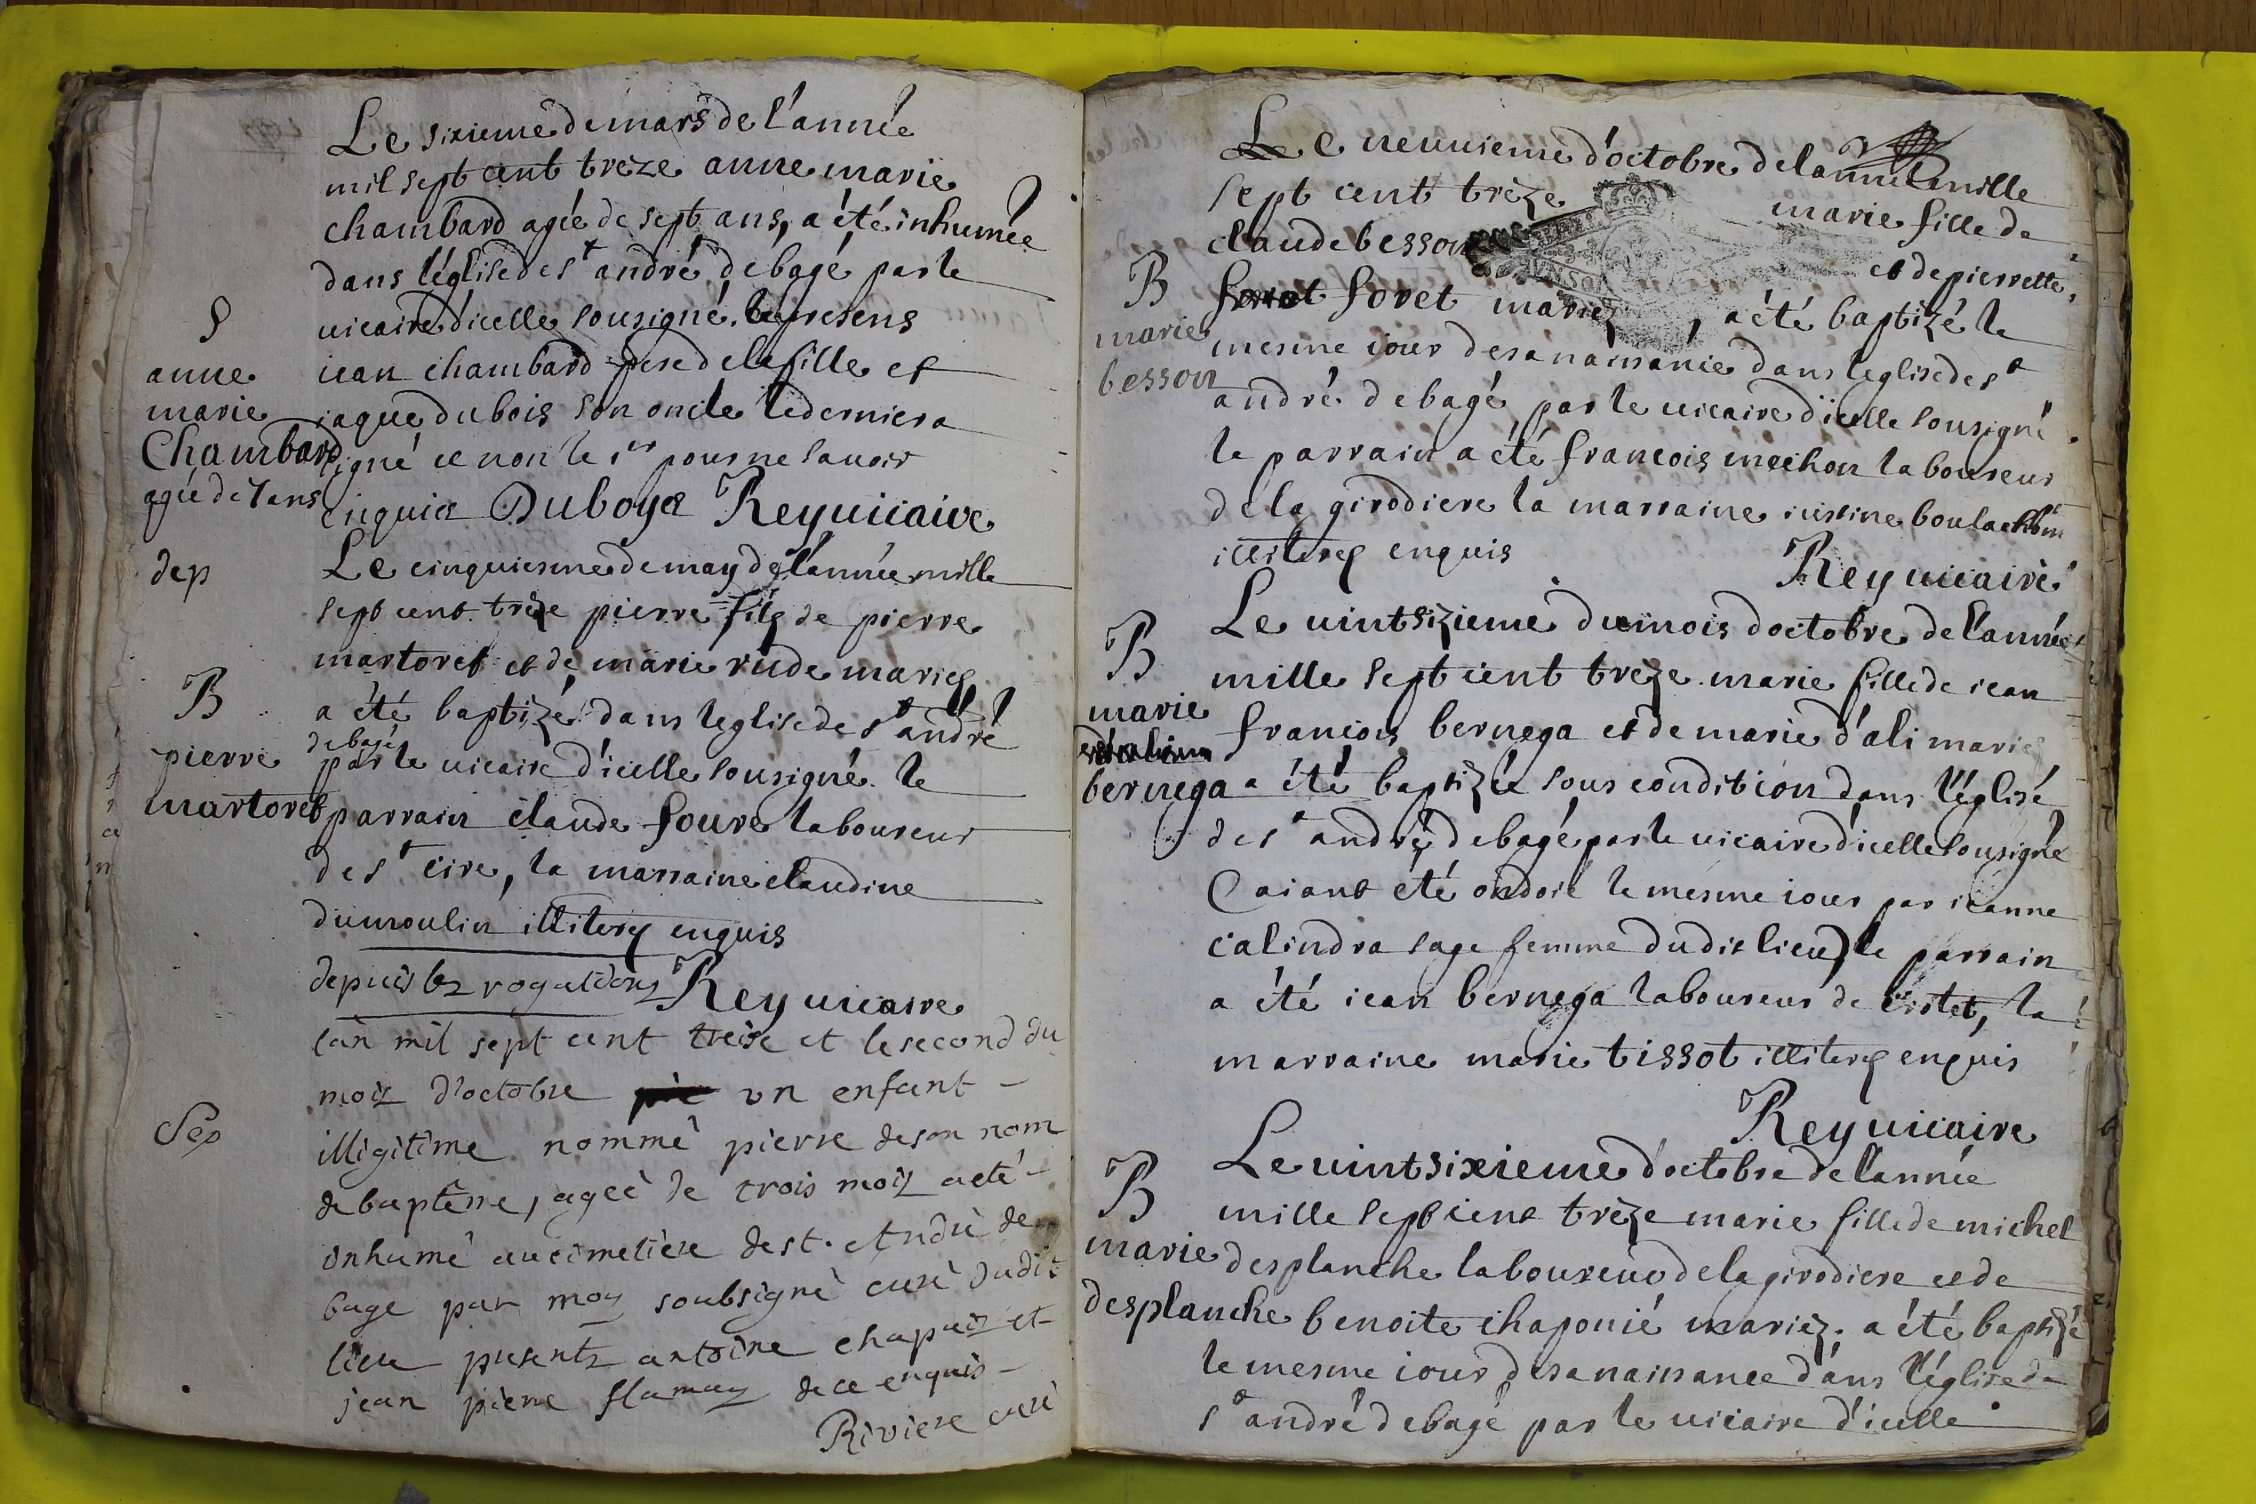 Le sixieme de mars de l'année
mil sept cent treze anne marie
chambard agée de sept ans, a été inhumée
dans l'église de st andré de bagé par le
S
vicaire d'icelle sousigné. les presens
anne
iean chambard pere de la fille et
marie
iaque du bois son oncle le dernier a
Chambard
signé ce non le 1er pour ne savoir
agée de 7 ans
enquis Duboys Rey vicaire
dep
Le cinquiesme de may de l'année mille
sept cent treze pierre fils de pierre
martoret et de marie rude mariés
B
a été baptizé dans leglise de st andré
de bagé
pierre
par le vicaire d'icelle sousigné. le
martoret
parrain claude foure laboureur
de st cire, la marraine claudine
dumoulin illiterés enquis
depuis les rogations Rey vicaire
lan mil sept cent treise et le second du
mois d'octobre un enfant
Sep
illigitime nommé pierre de son nom
de baptême, ageé de trois mois a eté
inhumé au cimetière de st. André de
bage par moy soubsigné curé dudit
lieu presents antoine chapuis et
jean pierre flamay de ce enquis
Riviere curé
Le neuuieme d'octobre de lannee mille
sept cent treze marie fille de
claude besson et de pierrette
B
foret mariez, a été baptizé le
marie
mesme iour de sa naissance dans leglise de st
besson
andré de bagé par le vicaire d'icelle sousigné
le parrain a été francois mechon laboureur
de la girodiere la marraine
illiterés enquis
Rey vicaire
Le vintsizieme du mois doctobre de l'année
B
mille sept cent treze marie fille de iean
marie
francois bernega et de marie d'ali mariés
bernega
a été baptizée sous condition dans l'église
de st andré de bagé par le vicaire d'icelle sousigné
(aiant été ondoié le mesme iour par ieanne
calindra sage femme dudit lieu) le parrain
a été iean bernega laboureur de cristet, la
marraine marie tissot illiterés enquis
Rey vicaire
Le vint sixieme d'octobre de l'année
B
mille sept cent treze marie fille de michel
marie
desplanche laboureur de la girodiere et de
desplanche
benoite chaponié mariez. a été baptizé
le mesme iour de sa naissance dans l'église de
st andré de bagé par le vicaire d'icelle